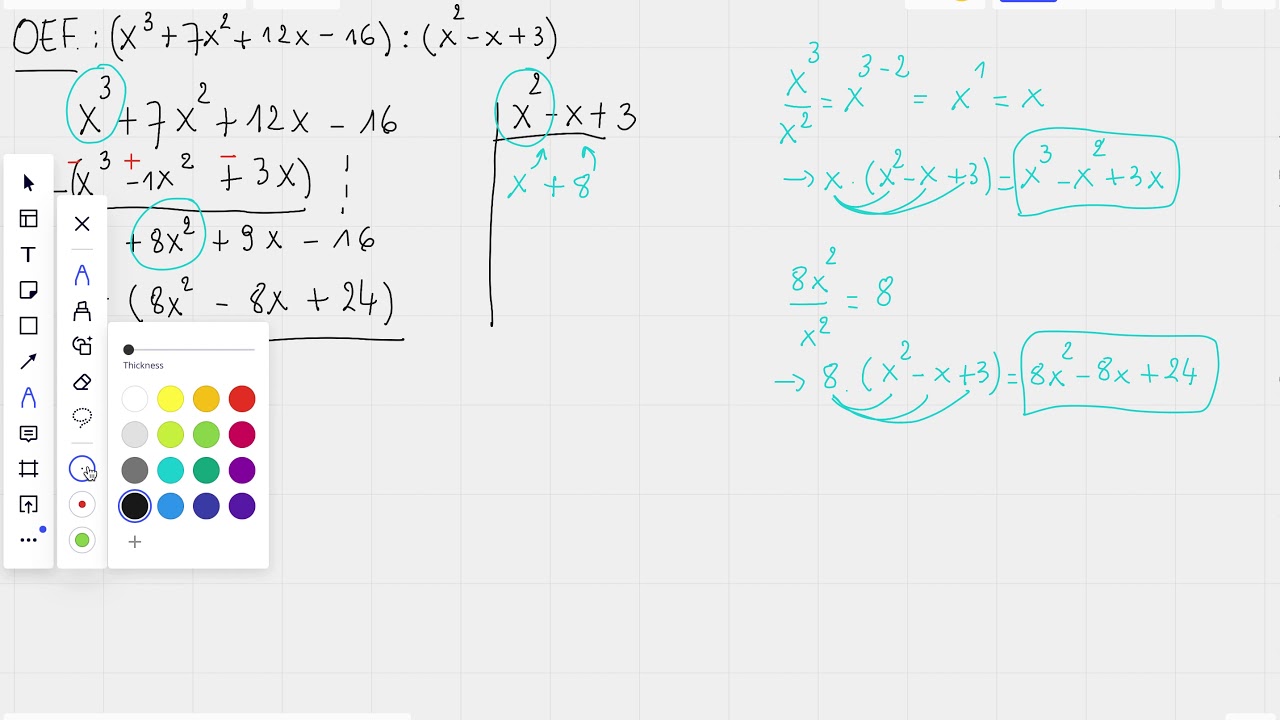 OEF. : (x³ + 7x² + 12x - 16) : (x² - x + 3)
x³ + 7x² + 12x - 16
x² - x + 3
- + -
-(x³ - 1x² + 3x)
x + 8
+ 8x² + 9x - 16
- (8x² - 8x + 24)
x³/x² = x³⁻² = x¹ = x
→ x . (x² - x + 3) = x³ - x² + 3x
8x²/x² = 8
→ 8 . (x² - x + 3) = 8x² - 8x + 24
T
Thickness